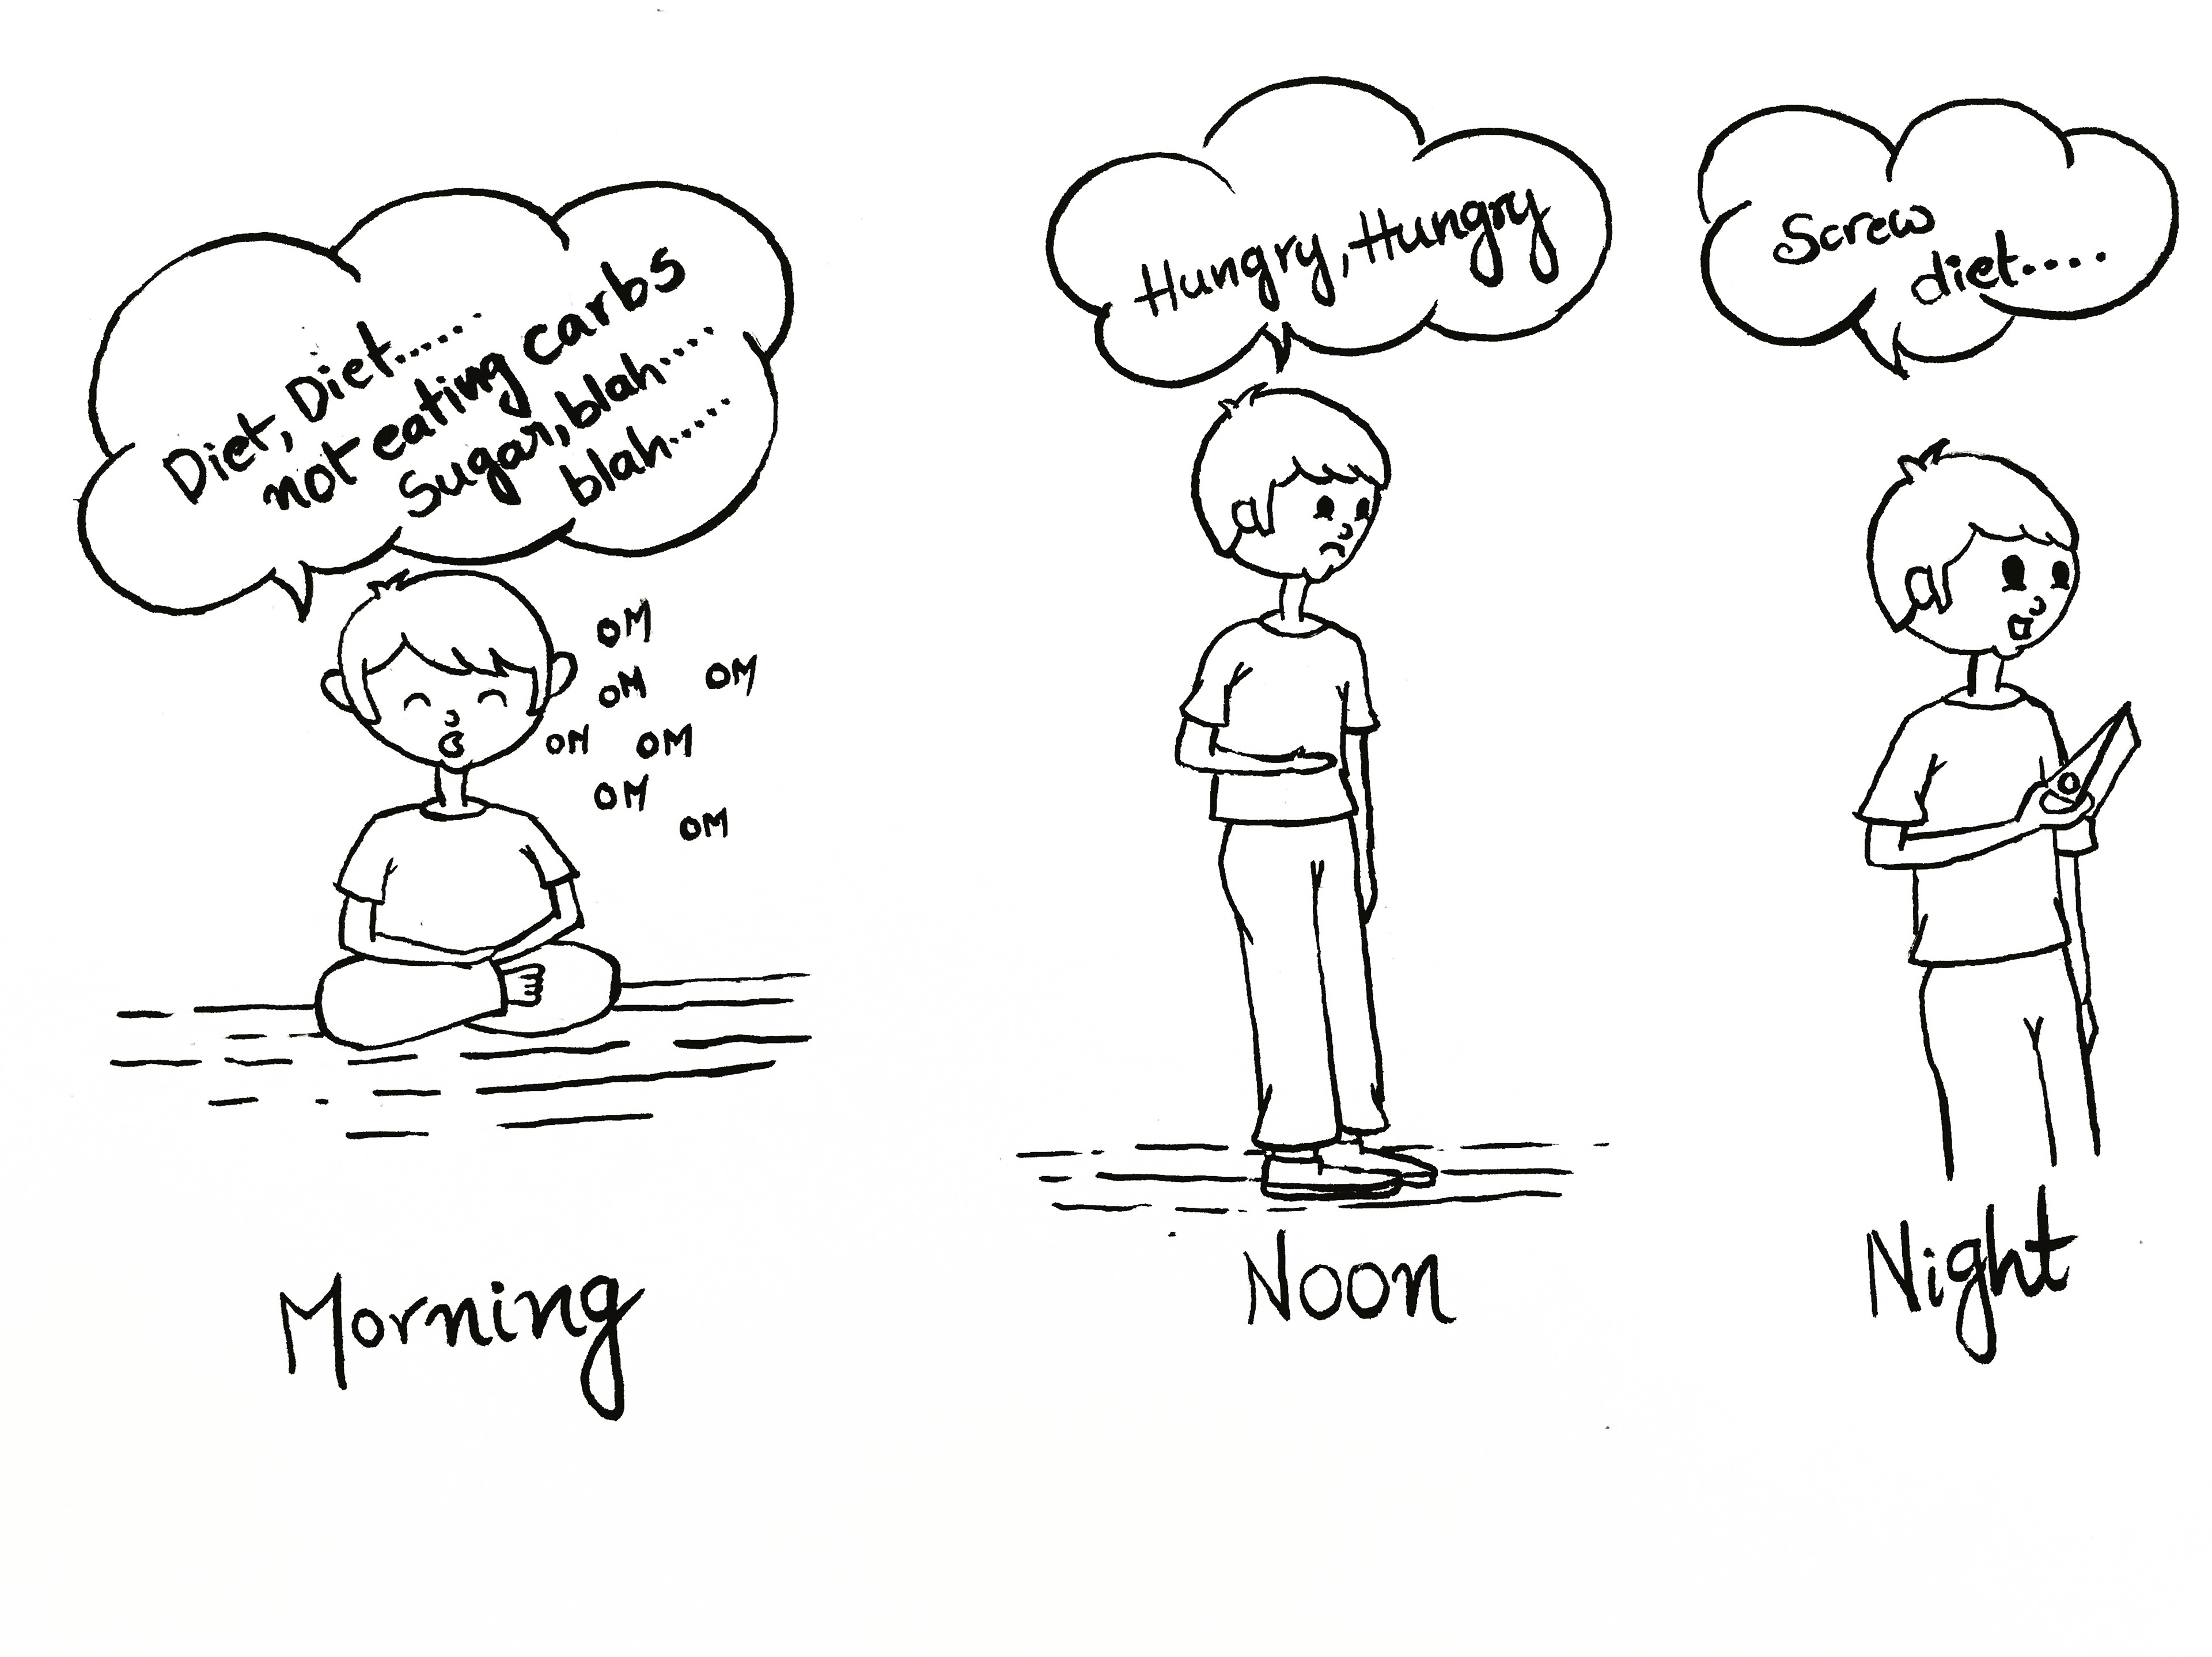 Diet, Diet......
not eating carbs
Sugar, blah....
blah.....
OM
OM OM
OM OM
OM
OM
Morning
Hungry, Hungry
Noon
Screw
diet....
Night